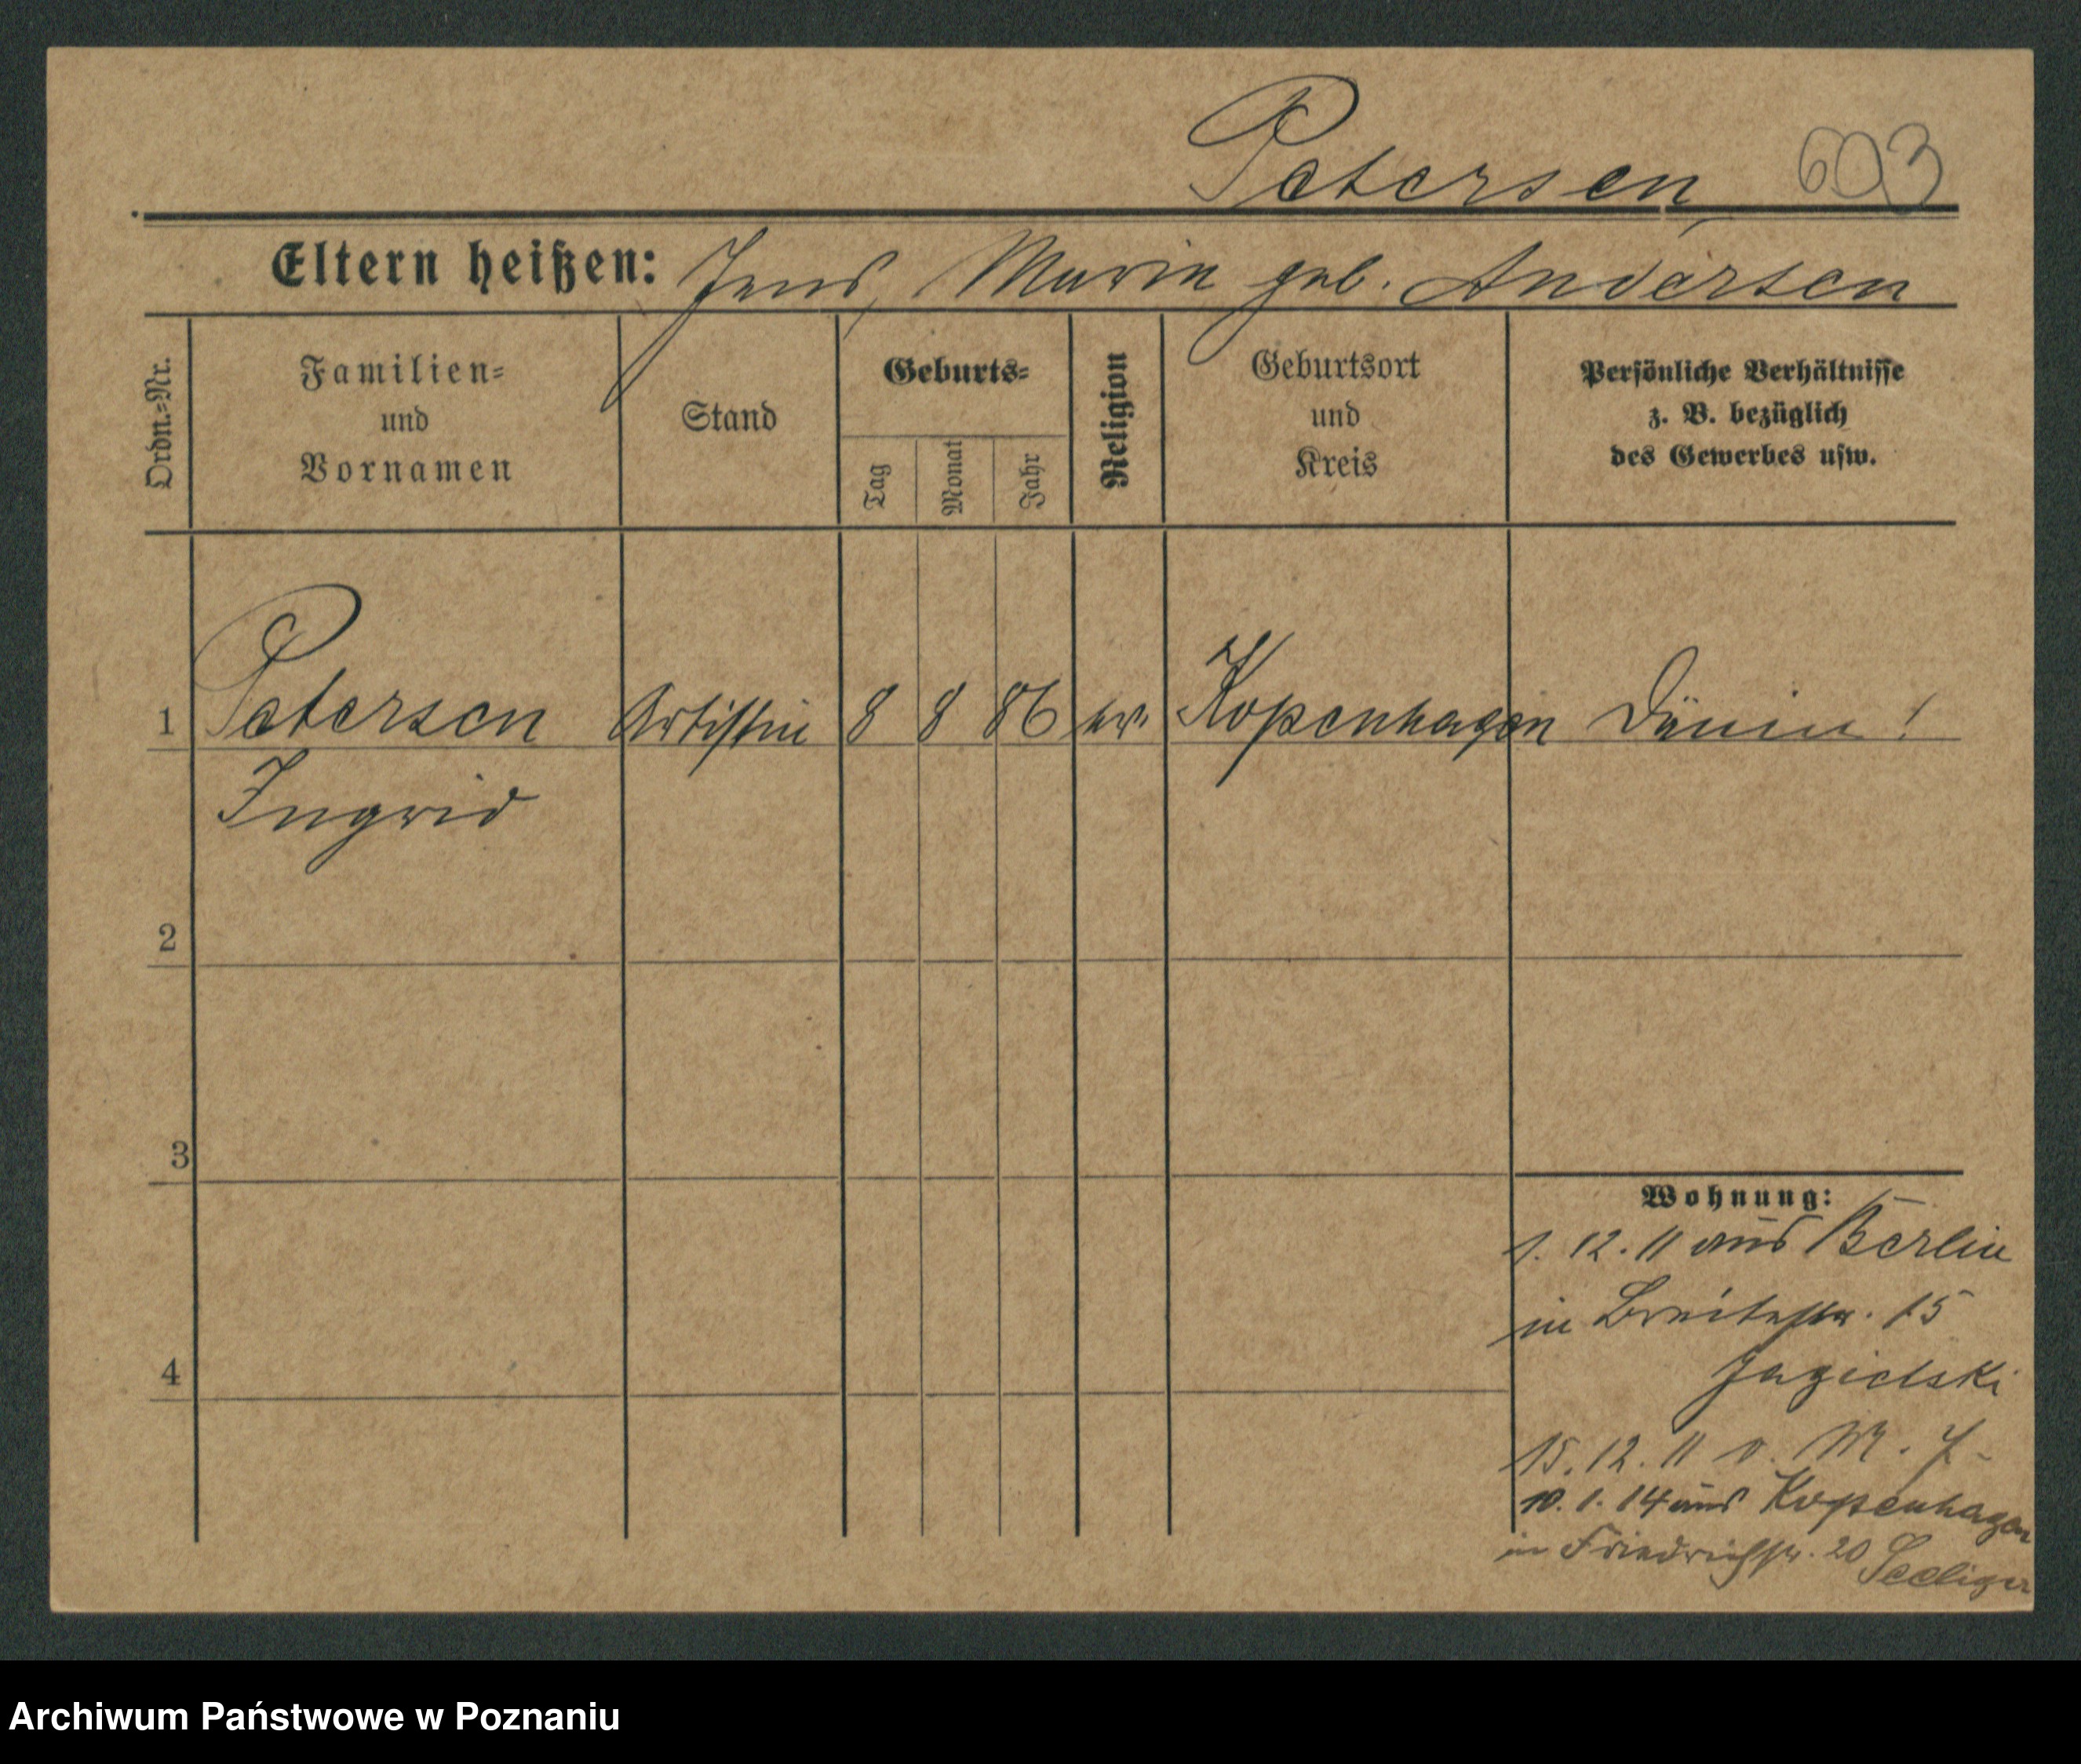 Petersen, 603
Eltern heißen: Jens, Marie geb. Andersen
Ordn.-Nr.
Familien-
und
Vornamen
Stand
Geburts-
Tag
Monat
Jahr
Religion
Geburtsort
und
Kreis
Persönliche Verhältnisse
z. B. bezüglich
des Gewerbes usw.
1 Petersen Artistin 8 8 86 ev. Kopenhagen Dänin!
Ingrid
2
3
4
Wohnung:
1. 12. 11 aus Berlin
in Breitestr. 15
Jagielski
15. 12. 11 v. M.
10. 1. 14 aus Kopenhagen
in Friedrichstr. 20 Seeliger
Archiwum Państwowe w Poznaniu